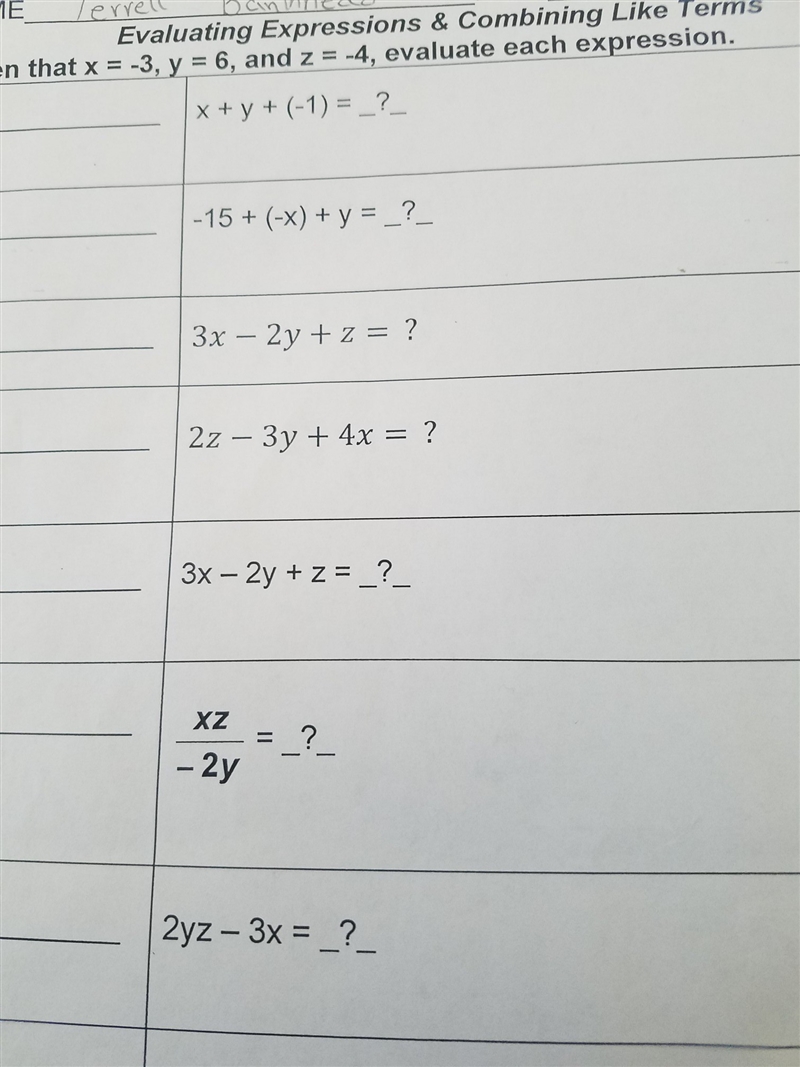 ME Terrell
Evaluating Expressions & Combining Like Terms
en that x = -3, y = 6, and z = -4, evaluate each expression.
x + y + (-1) = _?_
-15 + (-x) + y = _?_
3x − 2y + z = ?
2z − 3y + 4x = ?
3x – 2y + z = _?_
xz
– 2y
= _?_
2yz – 3x = _?_